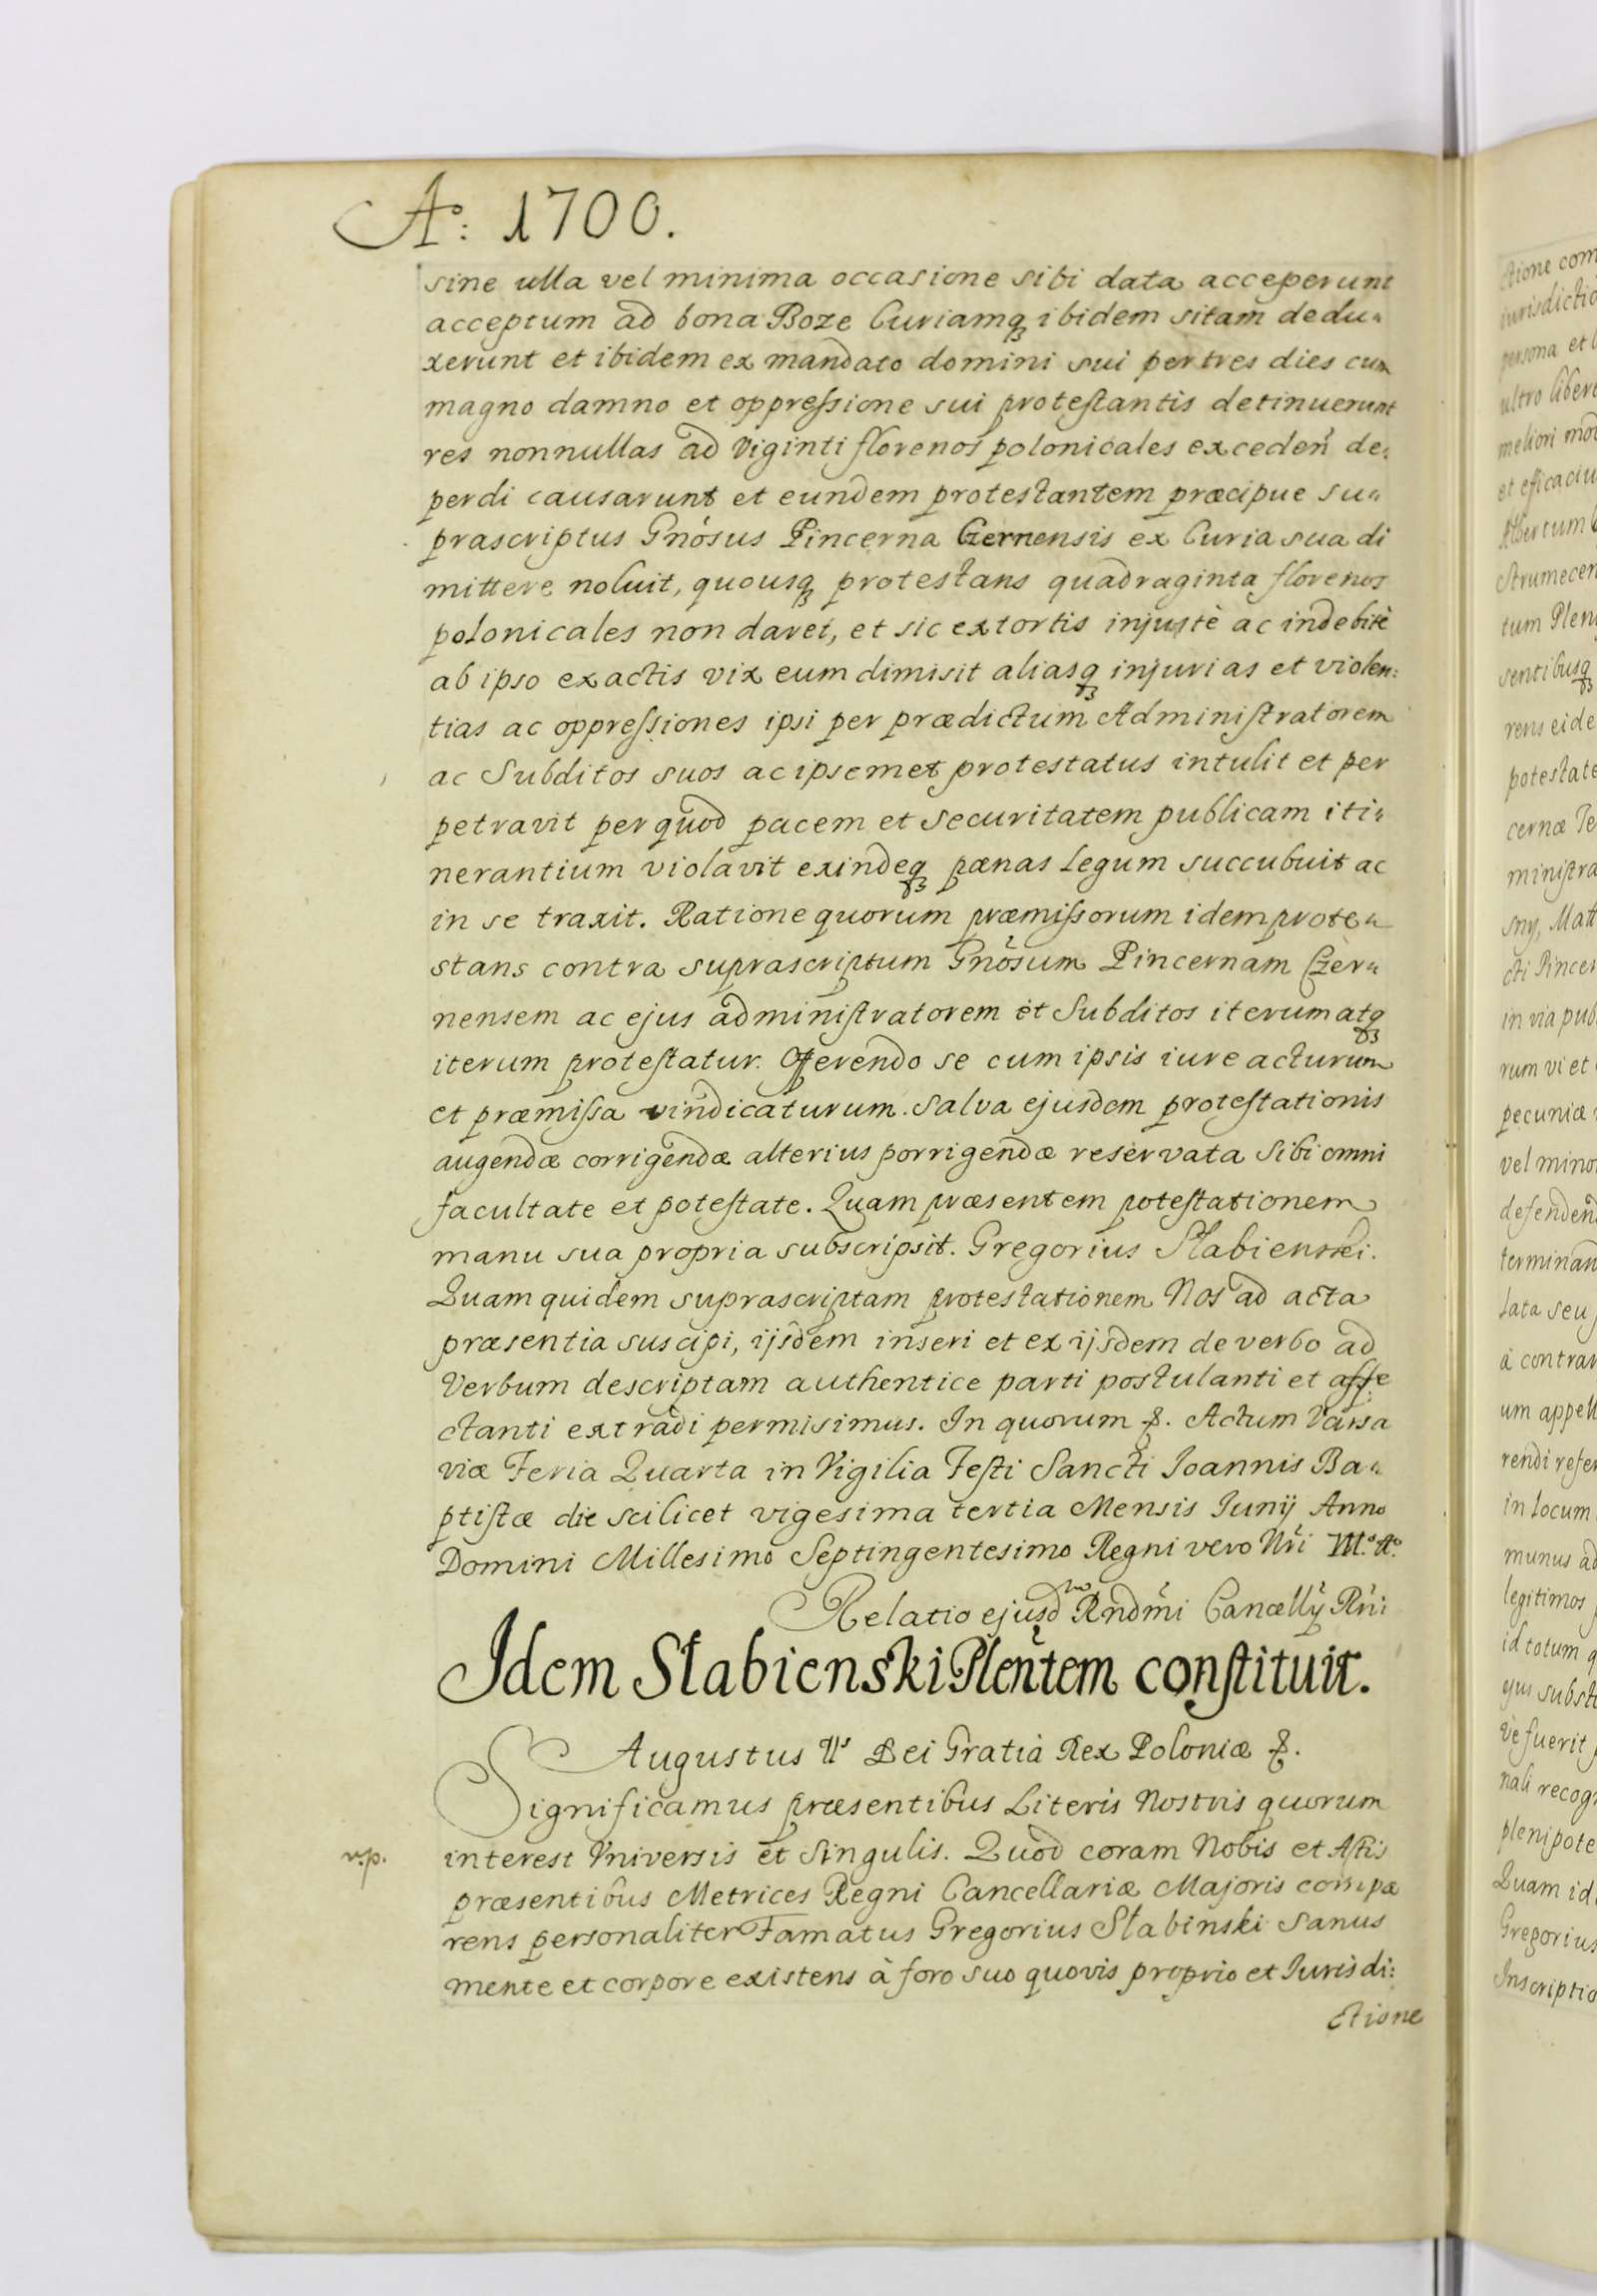 Aº: 1700.
sine ulla vel minima occasione sibi data acceperunt
acceptum ad bona Boze Curiamq₃ ibidem sitam dedu„
xerunt et ibidem ex mandato domini sui per tres dies cum
magno damno et oppreſsione sui proteſtantis detinuerunt
res nonnullas ad Viginti florenos polonicales exceden̄ de„
perdi causarunt et eundem protestantem præcipue su„
prascriptus Gnósus Pincerna Czernensis ex Curia sua di
mittere noluit, quousq₃ protestans quadraginta florenos
polonicales non daret, et sic extortis injustè ac indebitè
ab ipso exactis vix eum dimisit aliasq₃ injurias et violen:
tias ac oppreſsiones ipsi per prædictum Adminiſtratorem
ac Subditos suos ac ipsemet protestatus intulit et per
petravit per quod pacem et securitatem publicam iti„
nerantium violavit exindeq₃ pænas Legum succubuit ac
in se traxit. Ratione quorum præmiſsorum idem prote„
stans contra suprascriptum Gnósum Pincernam Czer„
nensem ac ejus adminiſtratorem et Subditos iterum atq₃
iterum proteſtatur. Offerendo se cum ipsis iure acturum
et præmiſsa vindicaturum. Salva ejusdem proteſtationis
augendæ corrigendæ alterius porrigendæ reservata sibi omni
facultate et poteſtate. Quam præsentem poteſtationem
manu sua propria subscripsit. Gregorius Słabienski.
Quam quidem suprascriptam protestationem Nos ad acta
præsentia suscipi, ijsdem inseri et ex ijsdem de verbo ad
Verbum descriptam authentice parti postulanti et affe
ctanti extradi permisimus. In quorum &. Actum Varsa
viæ Feria Quarta in Vigilia Feſti Sancti Joannis Ba„
ptiſtæ die scilicet vigesima tertia Mensis Junij Anno
Domini Millesimo Septingentesimo Regni vero Nri III.º Aº.
Relatio ejusd Rndmi Cancellÿ Rni:
Idem Słabienski Plentem conſtituit.
Augustus IIˢ Dei Gratia Rex Poloniæ &.
Significamus præsentibus Literis Nostris quorum
v.p. interest Vniversis et Singulis. Quod coram Nobis et Actis
præsentibus Metrices Regni Cancellariæ Majoris compa
rens personaliter Famatus Gregorius Słabinski sanus
mente et corpore existens à foro suo quovis proprio et Jurisdi:
ctione